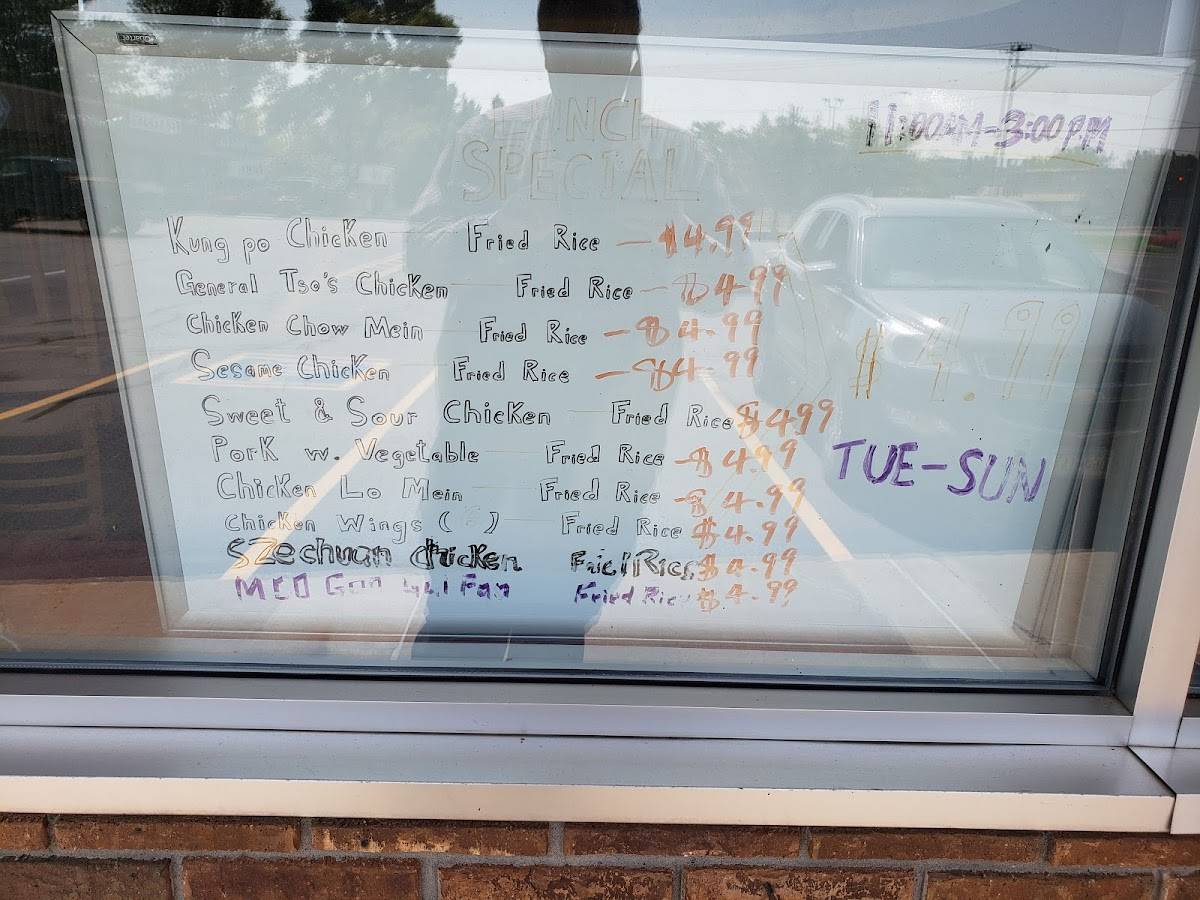 LUNCH
SPECIAL
11:00AM-3:00P.M
Kung po Chicken Fried Rice - $4.99
General Tso's Chicken Fried Rice - $4.99
Chicken Chow Mein Fried Rice - $4.99
Sesame Chicken Fried Rice - $4.99
$4.99
Sweet & Sour Chicken Fried Rice $499
Pork w. Vegetable Fried Rice - $4.99
TUE-SUN
Chicken Lo Mein Fried Rice - $4.99
Chicken Wings ( ) Fried Rice $4.99
Szechuan chicken Fried Rice $4.99
Moo Goo Fan Fried Rice $4.99